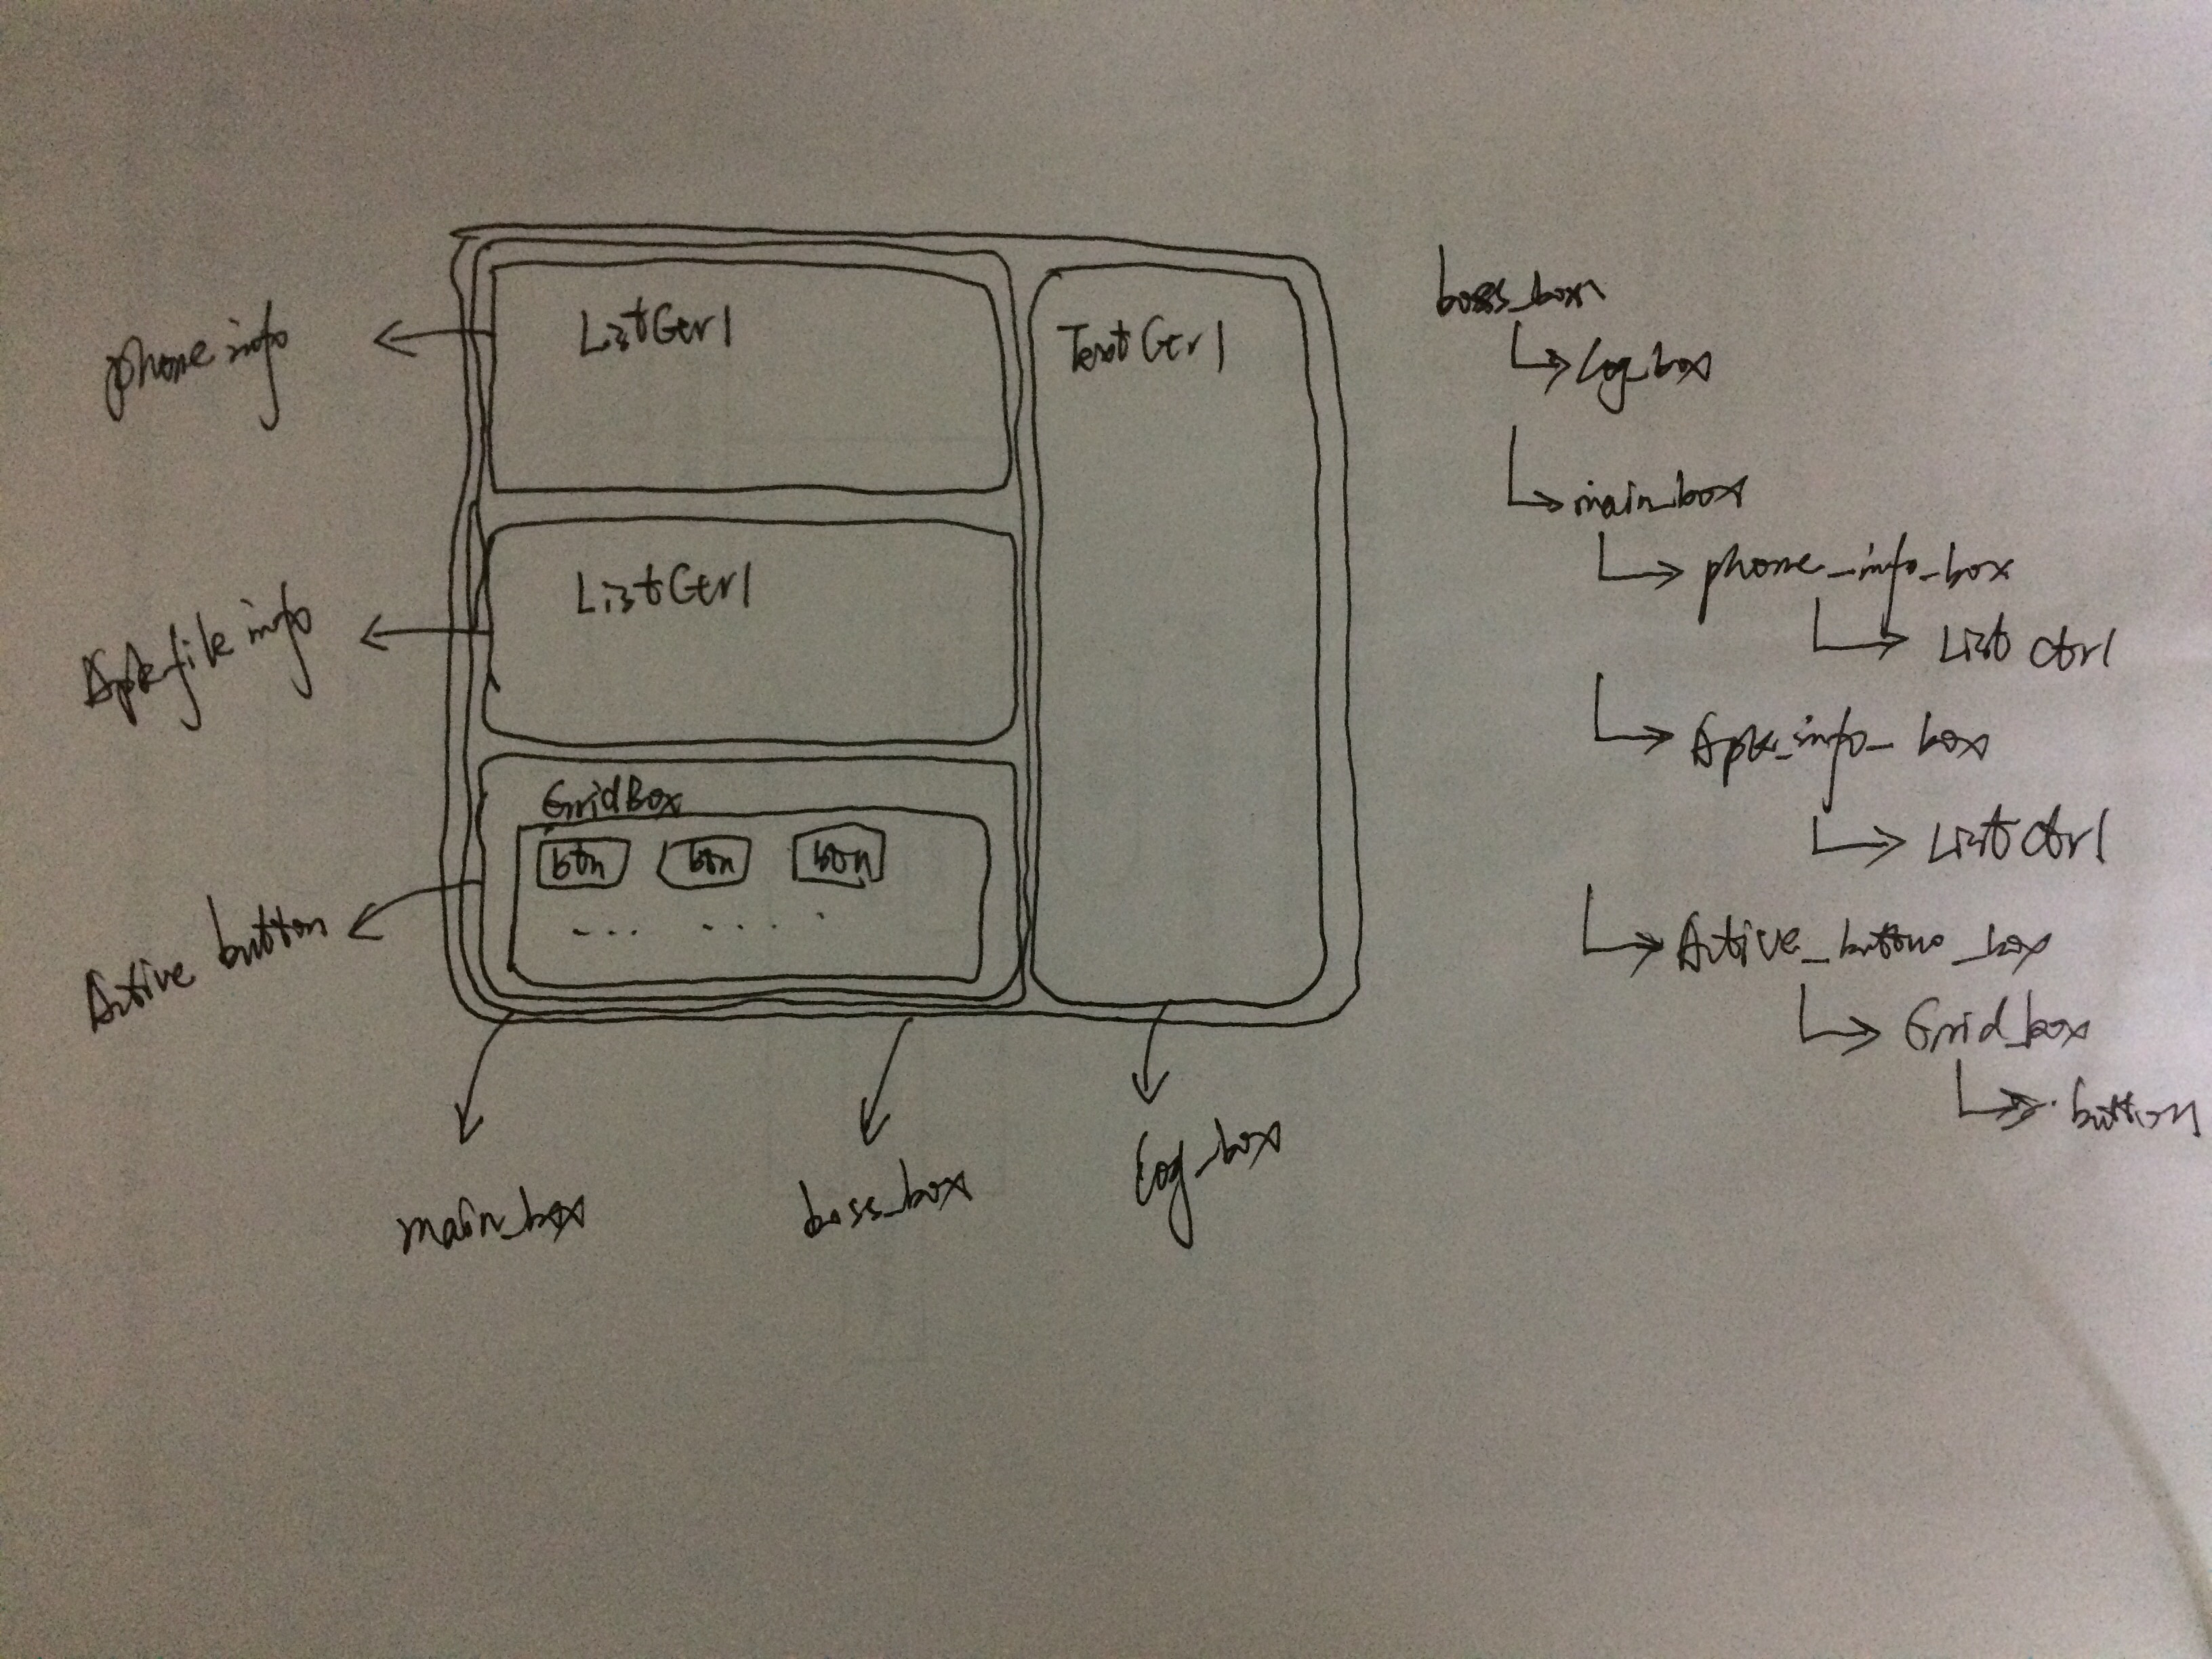 phone info
ListCtrl
TextCtrl
Apk file info
ListCtrl
Active button
GridBox
btn btn btn
... ....
main_box
boss_box
Log_box
boss_box
Log_box
main_box
phone_info_box
List Ctrl
Apk_info_box
List Ctrl
Active_button_box
Grid_box
button